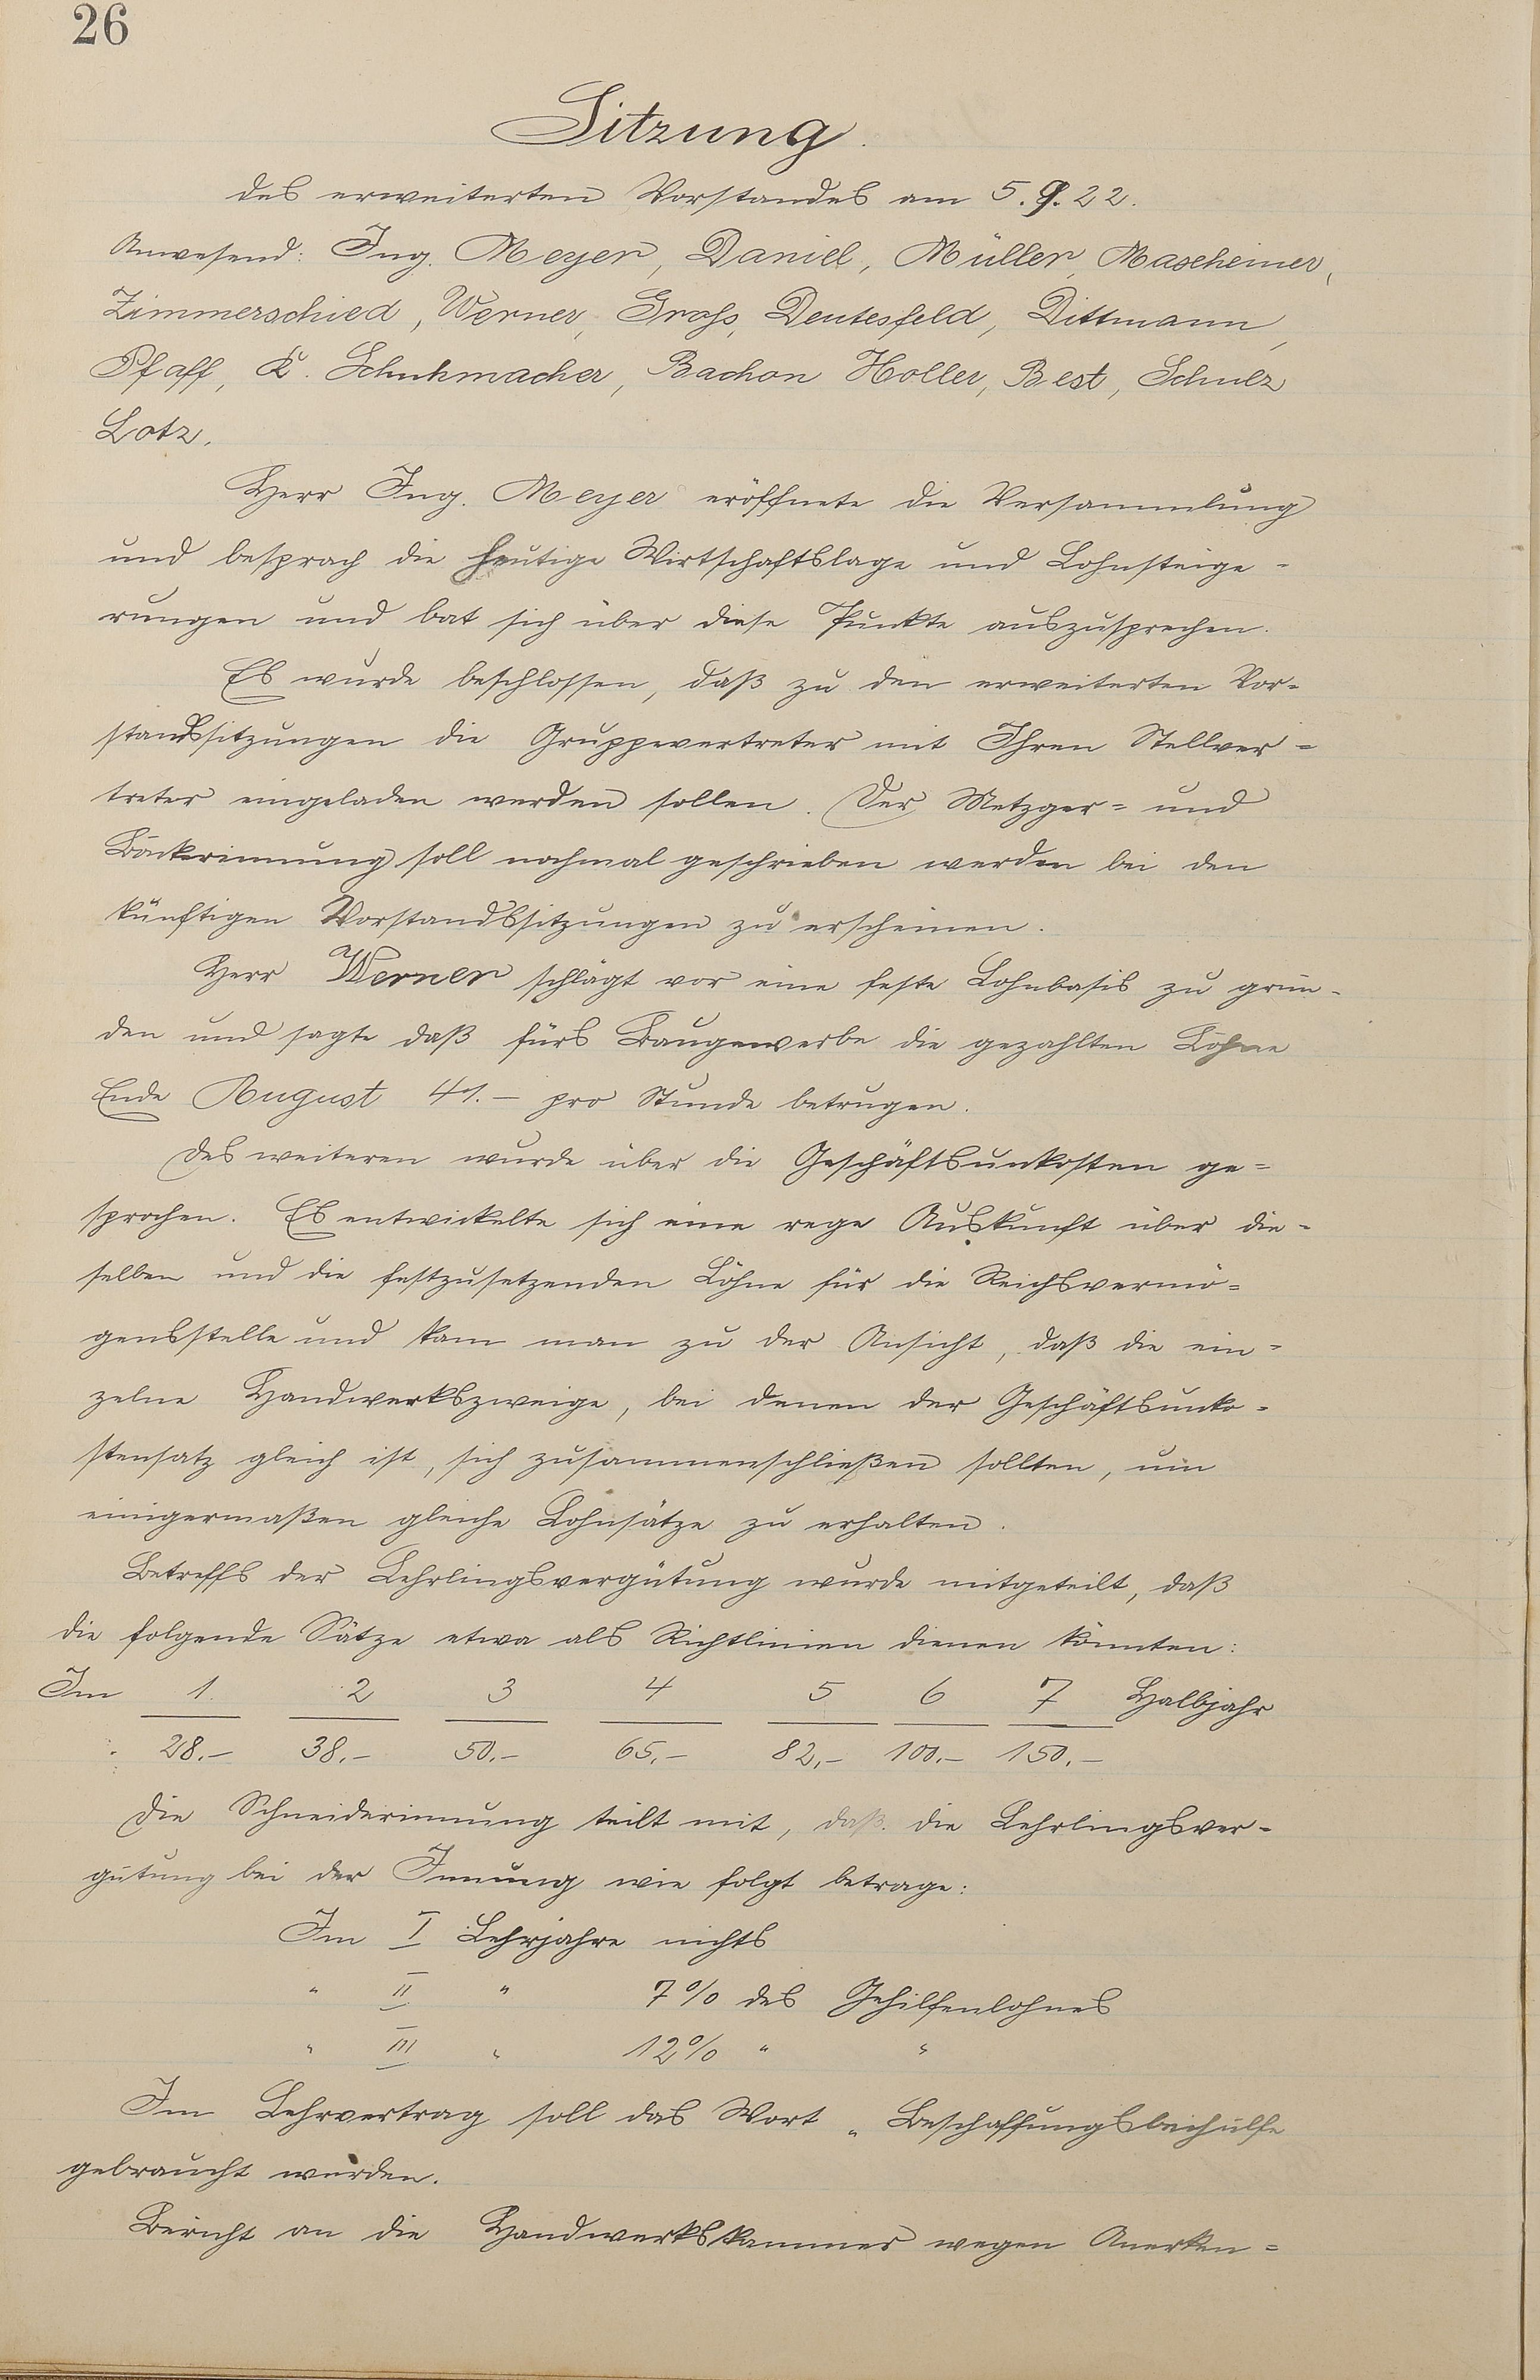 26
Sitzung.
des erweiterten Vorstandes am 5.9.22.
Anwesend: Ing. Meyer, Daniel, Müller, Mascheimer,
Zimmerschied, Werner, Groß, Deutesfeld, Dittmann,
Pfaff, K. Schuhmacher, Bachon Holler, Best, Schulz
Lotz.
Herr Ing. Meyer eröffnete die Versammlung
und besprach die heutige Wirtschaftslage und Lohnsteige-
rungen und bat sich über diese Punkte auszusprechen.
Es wurde beschlossen, daß zu den erweiterten Vor-
standssitzungen die Gruppevertreter mit Ihren Stellver-
treter eingeladen werden sollen. Der Metzger- und
Bäckerinnung soll nochmal geschrieben werden bei den
künftigen Vorstandssitzungen zu erscheinen.
Herr Werner schlägt vor eine feste Lohnbasis zu grün-
den und sagte daß fürs Baugewerbe die gezahlten Löhne
Ende August 41.- pro Stunde betrugen.
Des weiteren wurde über die Geschäftsunkosten ge-
sprochen. Es entwickelte sich eine rege Auskunft über die-
selben und die festzusetzenden Löhne für die Reichsvermö-
gensstelle und kam man zu der Ansicht, daß die ein-
zelne Handwerkszweige, bei denen der Geschäftsunko-
stensatz gleich ist, sich zusammenschließen sollten, um
einigermaßen gleiche Lohnsätze zu erhalten.
Betreffs der Lehrlingsvergütung wurde mitgeteilt, daß
die folgende Sätze etwa als Richtlinien dienen könnten:
Im 1. 2 3 4 5 6 7 Halbjahr
28.- 38.- 50.- 65.- 82.- 100.- 150.-
Die Schneiderinnung teilt mit, daß die Lehrlingsver-
gütung bei der Innung wie folgt betrage:
Im I Lehrjahre nichts
" II " 7% des Gehilfenlohnes
" III " 12% " "
Im Lehrvertrag soll das Wort „Beschaffungsbeihülfe
gebraucht werden.
Bericht an die Handwerkskammer wegen Anerken-